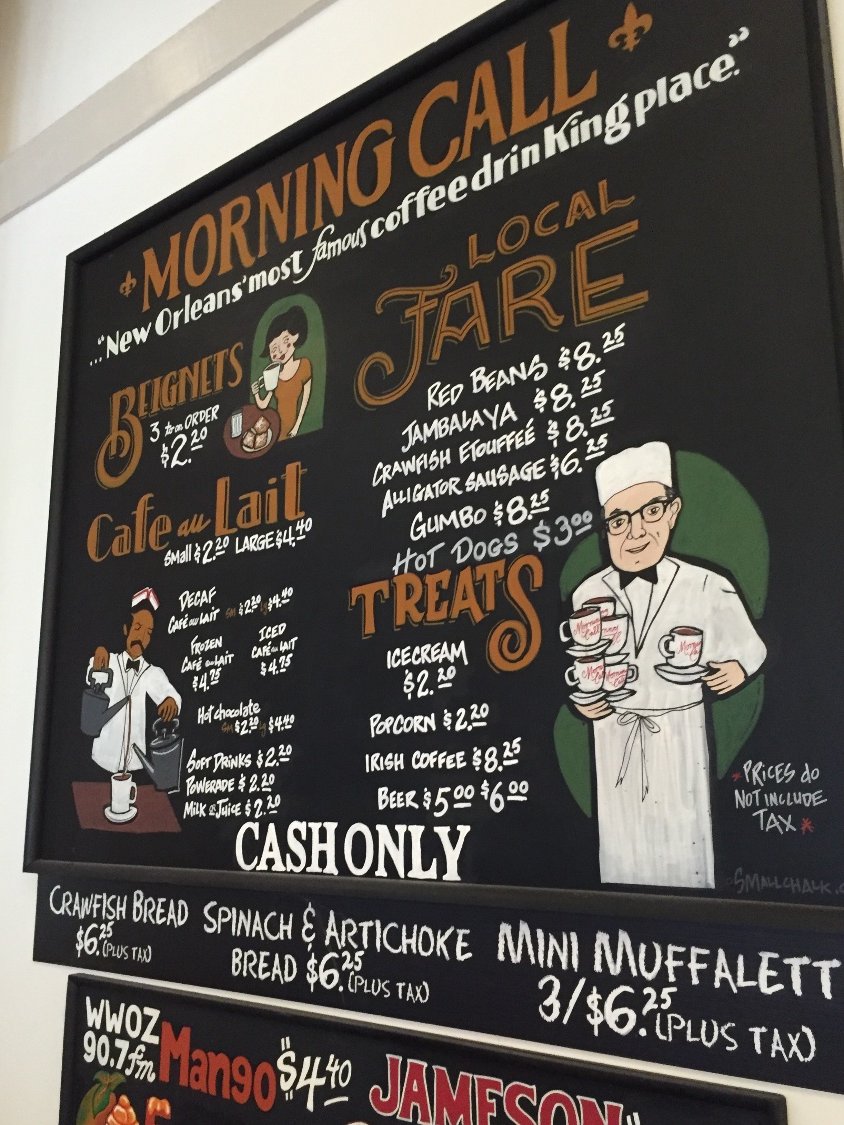 MORNING CALL
..."New Orleans' most famous coffee drinKing place."
BEIGNETS
3 to an ORDER
$2.20
Cafe au Lait
Small $2.20 LARGE $4.40
DECAF
CAFÉ au LAIT sm $2.20 lg $4.40
FROZEN
CAFÉ au LAIT
$4.75
ICED
CAFÉ au LAIT
$4.75
Hot chocolate
sm $2.20 lg $4.40
SOFT DRINKS $2.20
POWERADE $2.20
MILK or JUICE $2.20
LOCAL
FARE
RED BEANS $8.25
JAMBALAYA $8.25
CRAWFISH ETOUFFEÉ $8.25
ALLIGATOR SAUSAGE $6.25
GUMBO $8.25
HOT DOGS $3.00
TREATS
ICECREAM
$2.20
POPCORN $2.20
IRISH COFFEE $8.25
BEER $5.00 $6.00
Morning
Call
*PRICES do
NOT INCLUDE
TAX*
CASH ONLY
SMALLCHALK.
CRAWFISH BREAD
$6.25 (PLUS TAX)
SPINACH & ARTICHOKE
BREAD $6.25 (PLUS TAX)
MINI MUFFALETT
3/$6.25 (PLUS TAX)
WWOZ
90.7 fm
Mango
$4.40
JAMESON